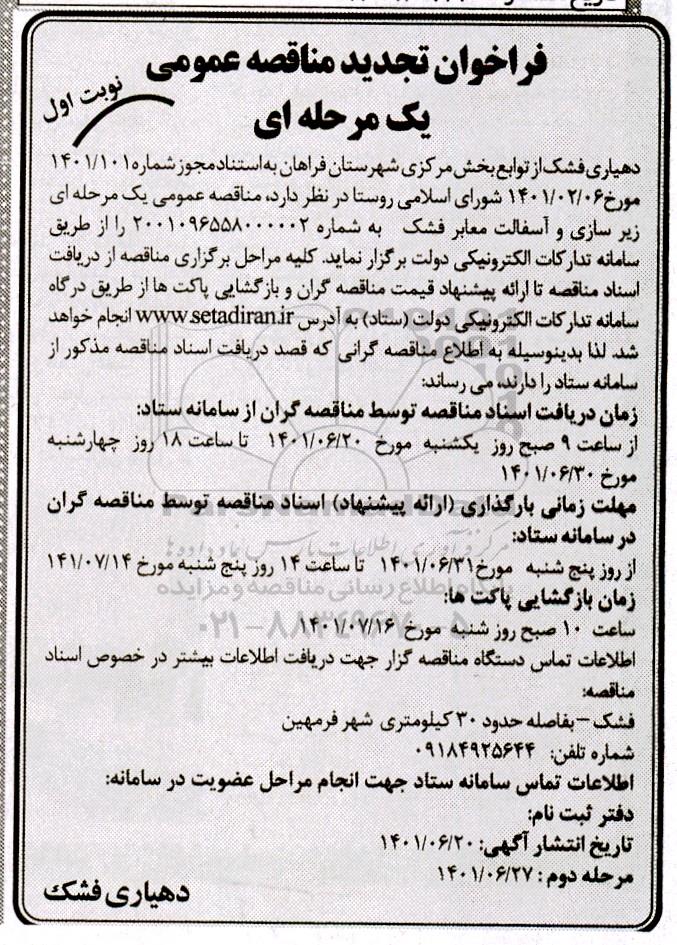 فراخوان تجدید مناقصه عمومی
یک مرحله ای
نوبت اول
دهیاری فشک از توابع بخش مرکزی شهرستان فراهان به استناد مجوز شماره ۱۴۰۱/۱۰۱
مورخ ۱۴۰۱/۰۲/۰۶ شورای اسلامی روستا در نظر دارد، مناقصه عمومی یک مرحله ای
زیر سازی و آسفالت معابر فشک به شماره ۲۰۰۱۰۹۶۵۵۸۰۰۰۰۰۲ را از طریق
سامانه تدارکات الکترونیکی دولت برگزار نماید. کلیه مراحل برگزاری مناقصه از دریافت
اسناد مناقصه تا ارائه پیشنهاد قیمت مناقصه گران و بازگشایی پاکت ها از طریق درگاه
سامانه تدارکات الکترونیکی دولت (ستاد) به آدرس www.setadiran.ir انجام خواهد
شد. لذا بدینوسیله به اطلاع مناقصه گرانی که قصد دریافت اسناد مناقصه مذکور از
سامانه ستاد را دارند، می رساند:
زمان دریافت اسناد مناقصه توسط مناقصه گران از سامانه ستاد:
از ساعت ۹ صبح روز یکشنبه مورخ ۱۴۰۱/۰۶/۲۰ تا ساعت ۱۸ روز چهارشنبه
مورخ ۱۴۰۱/۰۶/۳۰
مهلت زمانی بارگذاری (ارائه پیشنهاد) اسناد مناقصه توسط مناقصه گران
در سامانه ستاد:
از روز پنج شنبه مورخ ۱۴۰۱/۰۶/۳۱ تا ساعت ۱۴ روز پنج شنبه مورخ ۱۴۱/۰۷/۱۴
زمان بازگشایی پاکت ها:
ساعت ۱۰ صبح روز شنبه مورخ ۱۴۰۱/۰۷/۱۶
اطلاعات تماس دستگاه مناقصه گزار جهت دریافت اطلاعات بیشتر در خصوص اسناد
مناقصه:
فشک – بفاصله حدود ۳۰ کیلومتری شهر فرمهین
شماره تلفن: ۰۹۱۸۴۹۲۵۶۴۴
اطلاعات تماس سامانه ستاد جهت انجام مراحل عضویت در سامانه:
دفتر ثبت نام:
تاریخ انتشار آگهی: ۱۴۰۱/۰۶/۲۰
مرحله دوم : ۱۴۰۱/۰۶/۲۷
دهیاری فشک